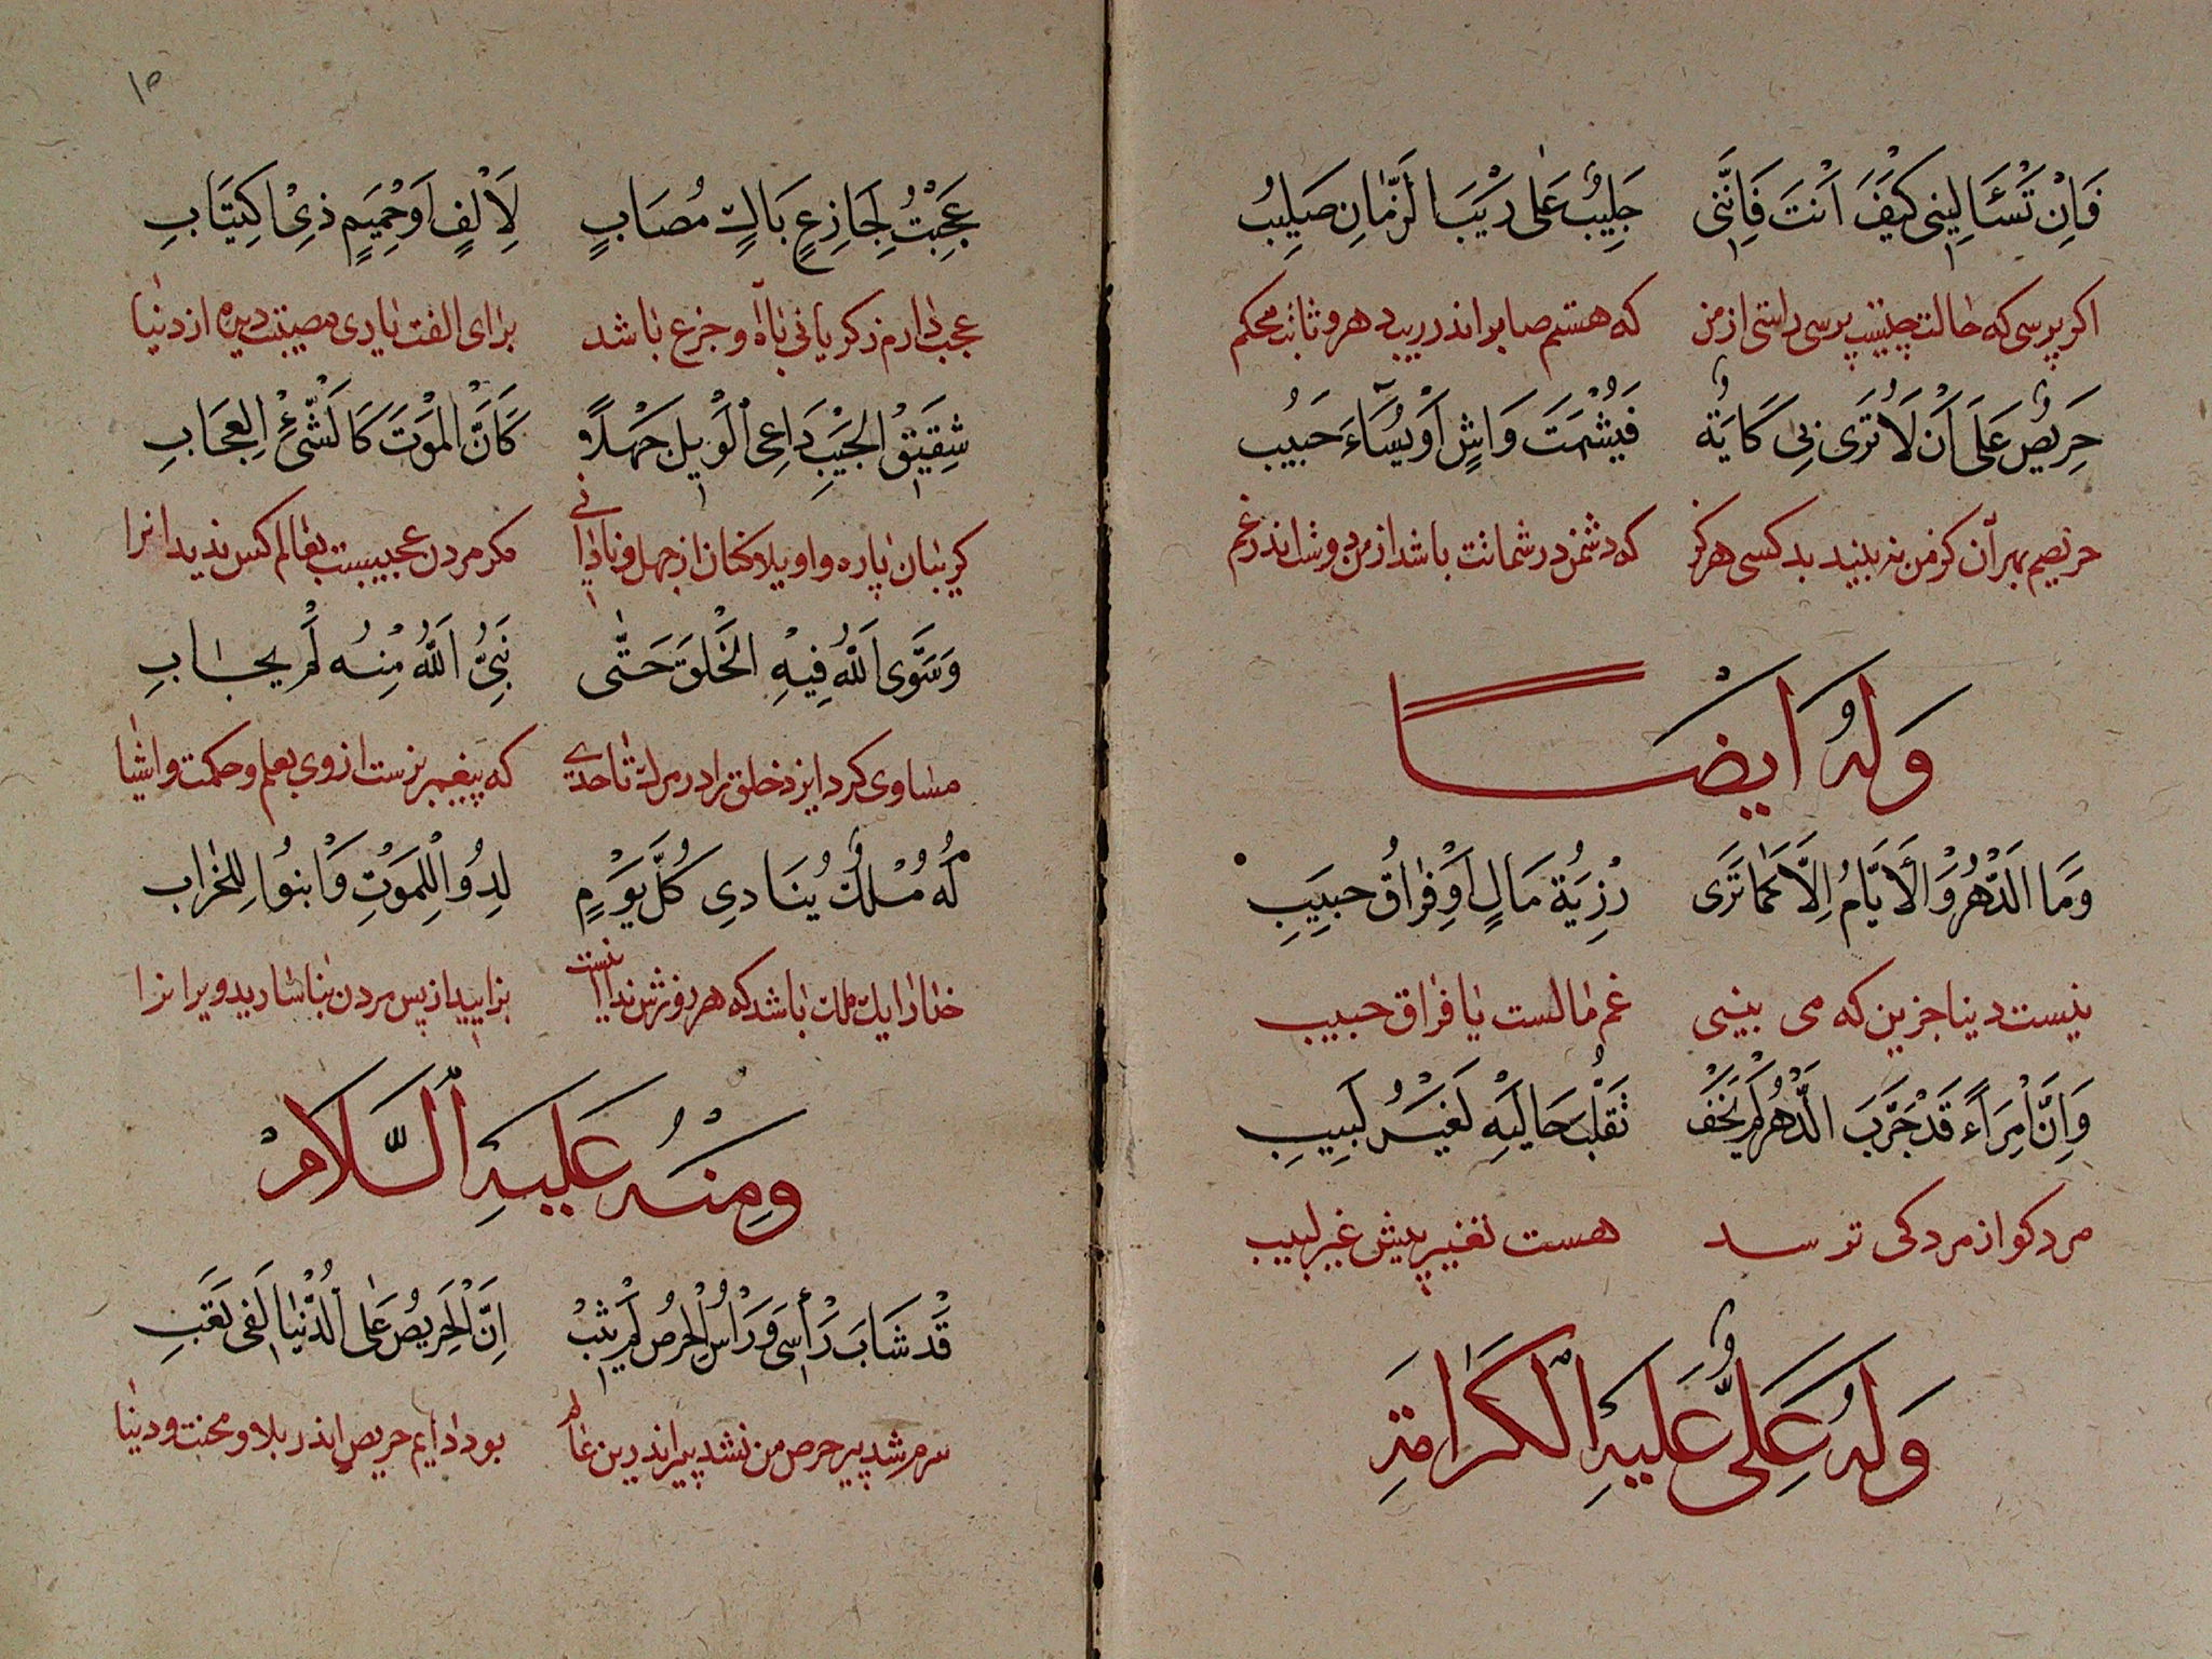 فَاِنْ تَسْئَالِینِی كَیْفَ اَنْتَ فَاِنَّنِی جَلِیبٌ عَلٰی رَیْبَ الزَّمَانِ صَلِیبُ
اکر پرسی که حالت چیست پرسی راستی از من که هستم صابر اندر ریب دهر و ثابت محکم
حَرِیصٌ عَلَی اَنْ لَا تُرَی بِی كَایَةٌ فَیُشْمَتَ وَاشٍ اَوْ یُسَآءَ حَبِیبُ
حریصم بهر آن کز من نه بیند بد کسی هرکز که دشمن در شماتت باشد از من دوست اندر غم
وَلَهُ اَیْضًا
وَمَا الدَّهْرُ وَالْاَیَّامُ اِلَّا كَمَا تَرَی رَزِیَةُ مَالٍ اَوْ فِرَاقُ حَبِیبِ
نیست دینا جزین که می بینی غم مالست یا فراق حبیب
وَاِنَّ امْرَاءً قَدْ جَرَّبَ الدَّهْرَ لَمْ یَخَفْ تَقَلُّبَ حَالَیْهِ لَغَیْرُ لَبِیبِ
مرد کو از مرد کی ترسد هست تغییر پیش غیر لبیب
وَلَهُ عَلِیٌّ عَلَیْهِ الْكَرَامَةِ
١٥
عَجِبْتُ لِجَازِعٍ بَاكٍ مُصَابٍ لِاَلْفٍ اَوْ حَمِیمٍ ذِی اكْتِیَابِ
عجب دارم ز کریانی باآه و جزع باشد برای الفت یا ری مصیبت دیده از دنیا
شَقِیقِ الْجَیْبَ دَاعِی الْوَیْلِ جَهْلًا كَاَنَّ الْمَوْتَ كَالشَّیْءِ الْعُجَابِ
کریبان پاره و اویلا کنان از جهل و نادانی مکر مردن عجیبست بعالم کس ندید انرا
وَسَوَّی اللّٰهُ فِیهِ الْخَلْقَ حَتّٰی نَبِیُّ اللّٰهُ مِنْهُ لَمْ یُحَابِ
مساوی کرد ایزد خلق را در مرك تا حدی که پیغمبر نرست از وی بعلم و حکمت و اشیا
لَهُ مُلْكٌ یُنَادِی كُلَّ یَوْمٍ لِدُوا لِلْمَوْتِ وَابْنُوا لِلْخَرَابِ
خدا را یك ملك باشد که هر روزش ندا اینست بزایید از پس مردن بنا سازید ویرانرا
وَمِنْهُ عَلَیْهِ السَّلَامْ
قَدْ شَابَ رَأْسِی وَرَاْسُ الْحِرْصِ لَمْ یَشِبْ اِنَّ الْحَرِیصَ عَلَی الدُّنْیَا لَفِی تَعَبِ
سرم شد پیر حرص من نشد پیر اندرین عالم بود دایم حریص اندر بلا و محنت و دنیا